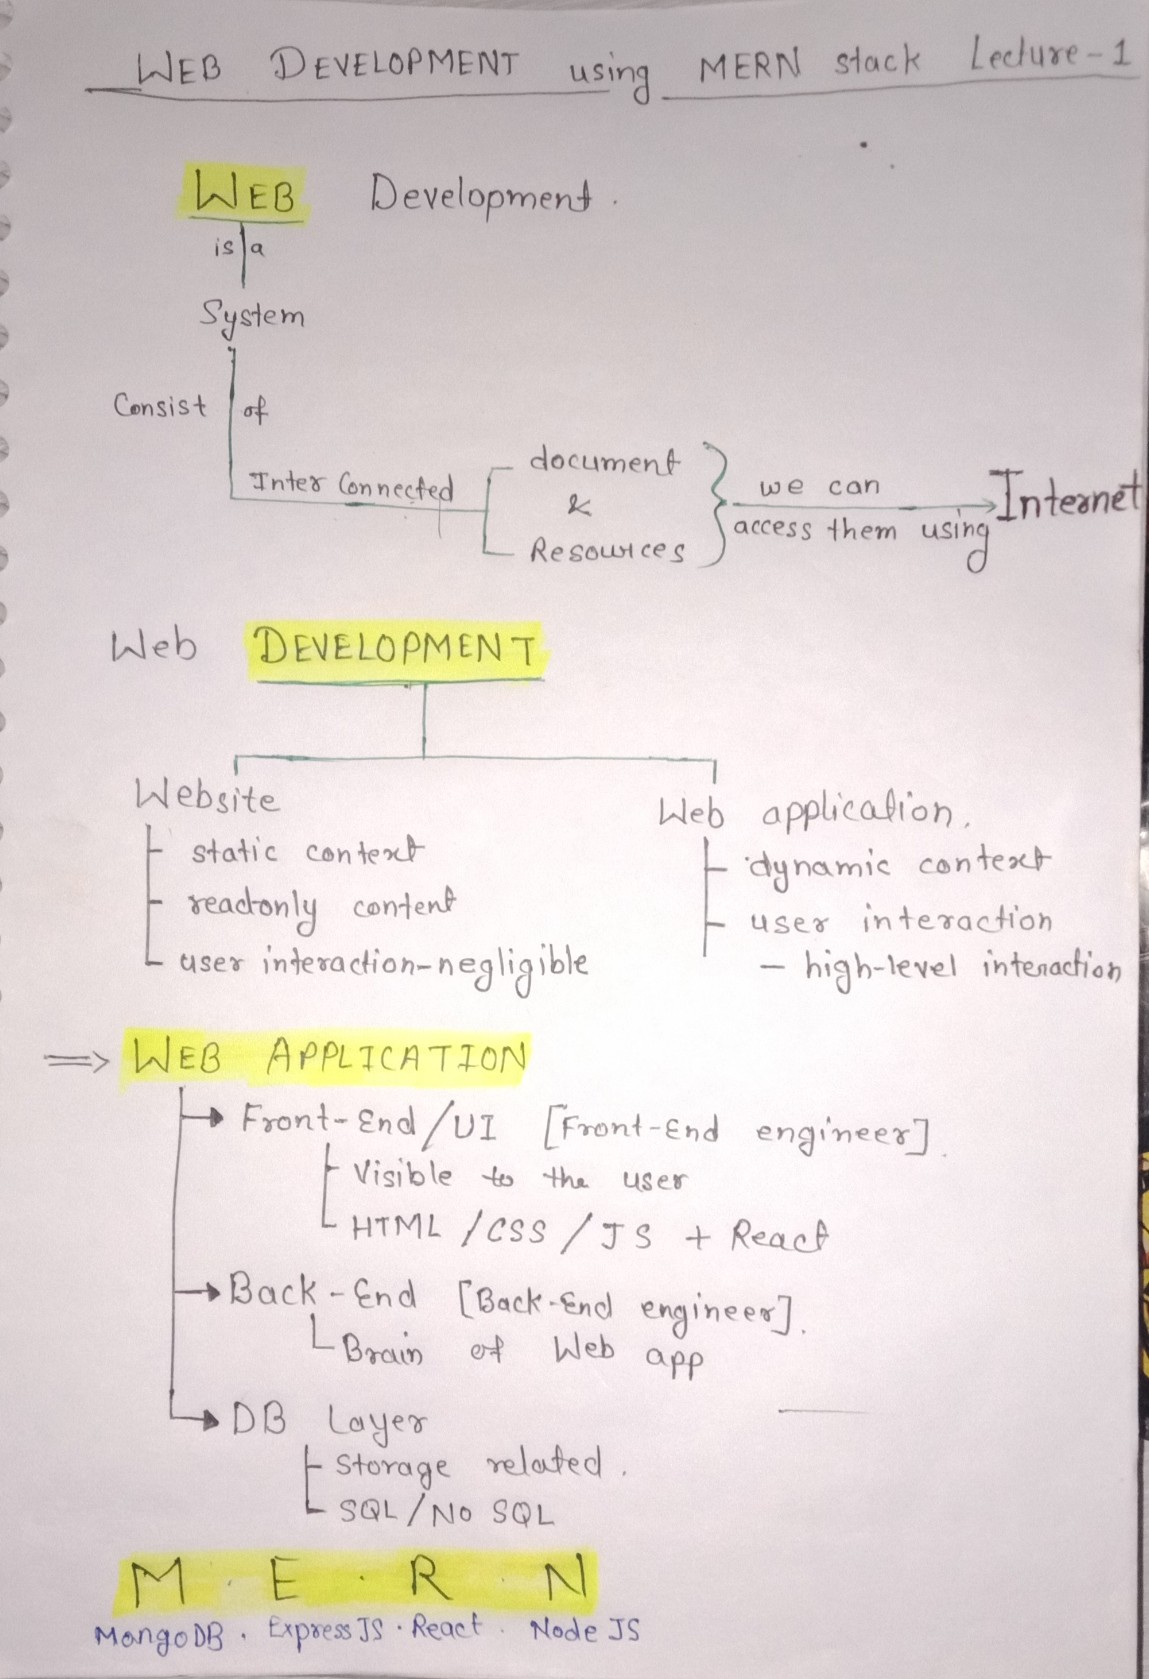 WEB DEVELOPMENT using MERN stack Lecture-1
WEB Development.
is a
System
Consist of
Inter Connected
document
&
Resources
we can
access them using
Internet
Web DEVELOPMENT
Website
static context
read-only content
user interaction-negligible
Web application.
dynamic context
user interaction
- high-level interaction
⇒ WEB APPLICATION
→ Front-End/UI [Front-End engineer].
Visible to the user
HTML / CSS / JS + React
→ Back-End [Back-End engineer].
Brain of Web app
→ DB Layer
Storage related.
SQL / No SQL
M . E . R . N
MongoDB . Express JS . React . Node JS